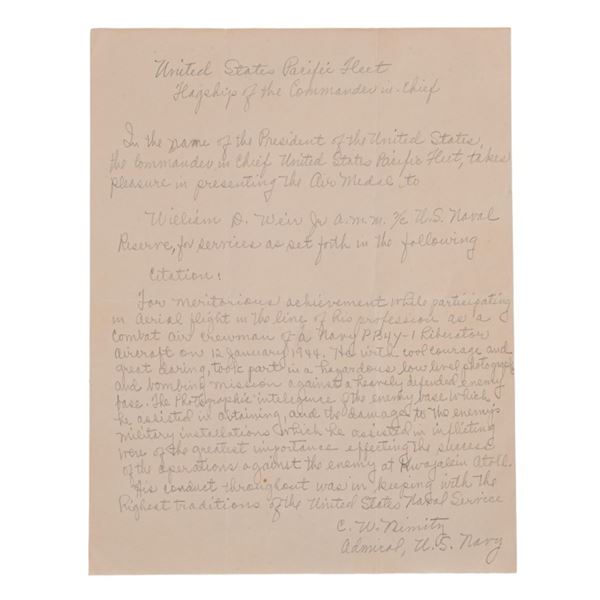 United States Pacific Fleet
Flagship of the Commander in-Chief
In the name of the President of the United States,
the Commander in Chief United States Pacific Fleet, takes
pleasure in presenting the Air Medal to
William D. Weir Jr A.M.M. 1/c U.S. Naval
Reserve, for services as set forth in the following
Citation:
For meritorious achievement while participating
in Aerial flight in the line of his profession as a
Combat air crewman of a Navy PB4Y-1 Liberator
Aircraft on 12 January 1944. He with cool courage and
great daring, took part in a hazardous low level photograph
and bombing mission against a heavily defended enemy
base. The Photographic intelligence of the enemy base which
he assisted in obtaining, and the damage to the enemys
military installations which he assisted in inflicting
were of the greatest importance effecting the success
of the operations against the enemy at Kwajalein Atoll.
His conduct throughout was in keeping with the
highest traditions of the United States Naval Service
C. W. Nimitz
Admiral, U.S. Navy